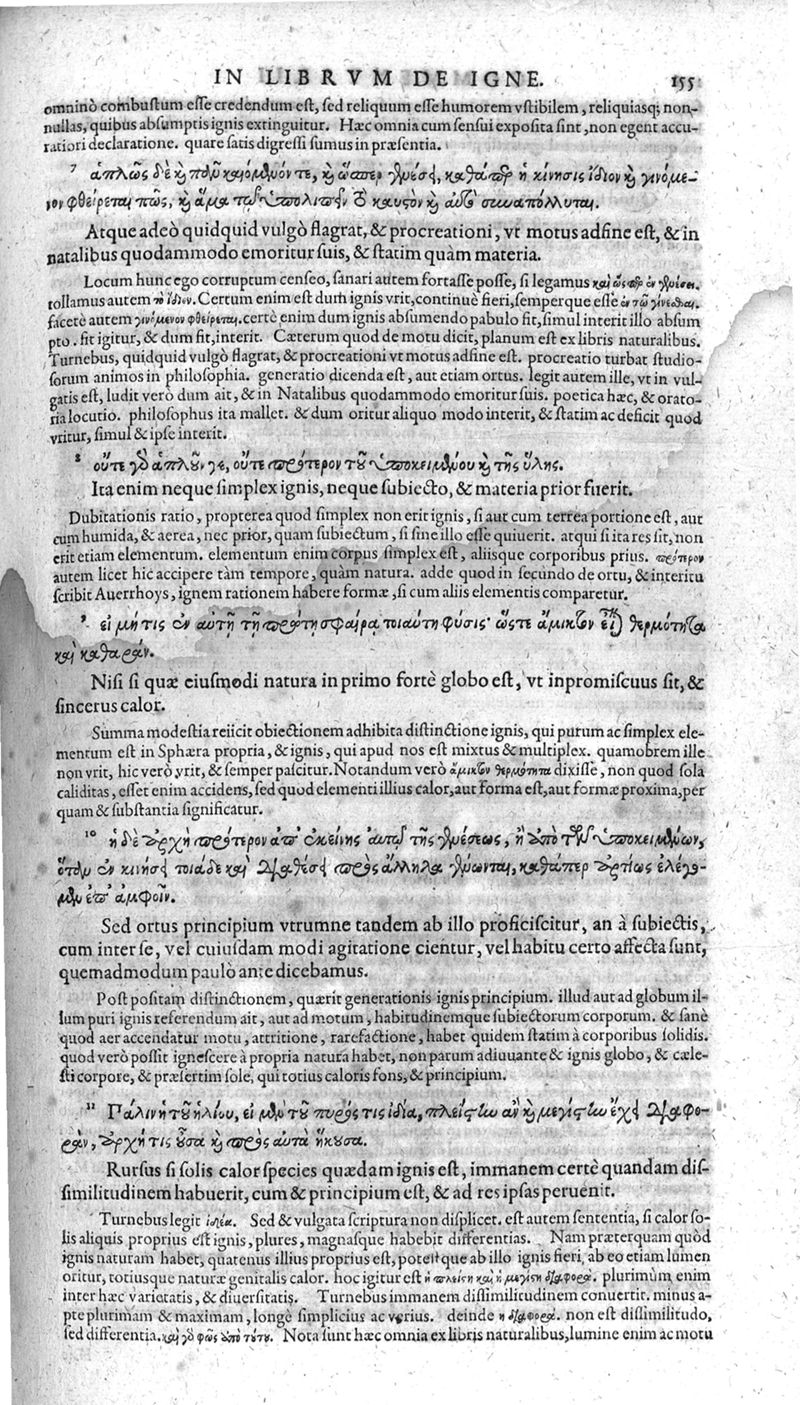 IN LIBRVM DE IGNE. 155
omninò combustum esse credendum est, sed reliquum esse humorem vstibilem, reliquiasq; non-
nullas, quibus absumptis ignis extinguitur. Hæc omnia cum sensui exposita sint, non egent accu-
ratiori declaratione. quare satis digressi sumus in præsentia.
7 ἁπλῶς δὲ καὶ πᾶν καιόμενόν τε, καὶ ὥσπερ γενέσει, καθάπερ ἡ κίνησις ἴδιον καὶ γινόμε-
νον φθείρεται πως, καὶ ἅμα τῷ ὑπολιπεῖν τὸ καυστὸν καὶ αὐτὸ συναπόλλυται.
Atque adeò quidquid vulgò flagrat, & procreationi, vt motus adfine est, & in
natalibus quodammodo emoritur suis, & statim quàm materia.
Locum hunc ego corruptum censeo, sanari autem fortasse posse, si legamus καὶ ὥσπερ ἐν γενέσει.
tollamus autem τὸ ἴδιον. Certum enim est dum ignis vrit, continuè fieri, semperque esse ἐν τῷ γίνεσθαι.
facetè autem γινόμενον φθείρεται. certè enim dum ignis absumendo pabulo fit, simul interit illo absum
pto. fit igitur, & dum fit, interit. Cæterum quod de motu dicit, planum est ex libris naturalibus.
Turnebus, quidquid vulgò flagrat, & procreationi vt motus adfine est. procreatio turbat studio-
sorum animos in philosophia. generatio dicenda est, aut etiam ortus. legit autem ille, vt in vul-
gatis est, ludit verò dum ait, & in Natalibus quodammodo emoritur suis. poetica hæc, & orato-
ria locutio. philosophus ita mallet. & dum oritur aliquo modo interit, & statim ac deficit quod
vritur, simul & ipse interit.
8 οὔτε γὰρ ἁπλοῦν γε, οὔτε πρότερον τοῦ ὑποκειμένου καὶ τῆς ὕλης.
Ita enim neque simplex ignis, neque subiecto, & materia prior fuerit.
Dubitationis ratio, propterea quod simplex non erit ignis, si aut cum terrea portione est, aut
cum humida, & aerea, nec prior, quam subiectum, si sine illo esse quiuerit. atqui si ita res sit, non
erit etiam elementum. elementum enim corpus simplex est, aliisque corporibus prius. πρότερον
autem licet hic accipere tàm tempore, quàm natura. adde quod in secundo de ortu, & interitu
scribit Auerrhoys, ignem rationem habere formæ, si cum aliis elementis comparetur.
9 εἰ μή τις ἐν αὐτῇ τῇ πρώτῃ σφαίρᾳ τοιαύτη φύσις· ὥστε ἄμικτον εἶναι θερμότητα
καὶ καθαράν.
Nisi si quæ eiusmodi natura in primo fortè globo est, vt inpromiscuus sit, &
sincerus calor.
Summa modestia reiicit obiectionem adhibita distinctione ignis, qui purum ac simplex ele-
mentum est in Sphæra propria, & ignis, qui apud nos est mixtus & multiplex. quamobrem ille
non vrit, hic verò vrit, & semper pascitur. Notandum verò ἄμικτον θερμότητα dixisse, non quod sola
caliditas, esset enim accidens, sed quod elementi illius calor, aut forma est, aut formæ proxima, per
quam & substantia significatur.
10 ἡ δὲ ἀρχὴ πρότερον ἀπ' ἐκείνης αὐτῷ τῆς γενέσεως, ἢ ἀπὸ τῶν ὑποκειμένων,
ὅταν ἐν κινήσει τοιᾷδε καὶ διαθέσει πρὸς ἄλληλα γένωνται, καθάπερ ἀρτίως ἐλέγο-
μεν ἐπ' ἀμφοῖν.
Sed ortus principium vtrumne tandem ab illo proficiscitur, an à subiectis,
cum inter se, vel cuiusdam modi agitatione cientur, vel habitu certo affecta sunt,
quemadmodum paulò ante dicebamus.
Post positam distinctionem, quærit generationis ignis principium. illud aut ad globum il-
lum puri ignis referendum ait, aut ad motum, habitudinemque subiectorum corporum. & sanè
quod aer accendatur motu, attritione, rarefactione, habet quidem statim à corporibus solidis.
quod verò possit ignescere à propria natura habet, non parum adiuuante & ignis globo, & cæle-
sti corpore, & præsertim sole, qui totius caloris fons, & principium.
11 Πάλιν ἡ τοῦ ἡλίου, εἰ μὲν τοῦ πυρός τις ἰδία, πλείστην ἂν καὶ μεγίστην ἔχει διαφο-
ράν, ἀρχή τις οὖσα καὶ πρὸς αὐτὰ ἥκουσα.
Rursus si solis calor species quædam ignis est, immanem certè quandam dis-
similitudinem habuerit, cum & principium est, & ad res ipsas peruenit.
Turnebus legit ἰδέα. Sed & vulgata scriptura non displicet. est autem sententia, si calor so-
lis aliquis proprius est ignis, plures, magnasque habebit differentias. Nam præterquam quòd
ignis naturam habet, quatenus illius proprius est, potestque ab illo ignis fieri, ab eo etiam lumen
oritur, totiusque naturæ genitalis calor. hoc igitur est ἡ πλείστη καὶ ἡ μεγίστη διαφορά. plurimùm enim
inter hæc varietatis, & diuersitatis. Turnebus immanem dissimilitudinem conuertit. minus a-
pte plurimam & maximam, longè simplicius ac verius. deinde ἡ διαφορά. non est dissimilitudo,
sed differentia. καὶ γὰρ φῶς ἀπὸ τούτου. Nota sunt hæc omnia ex libris naturalibus, lumine enim ac motu